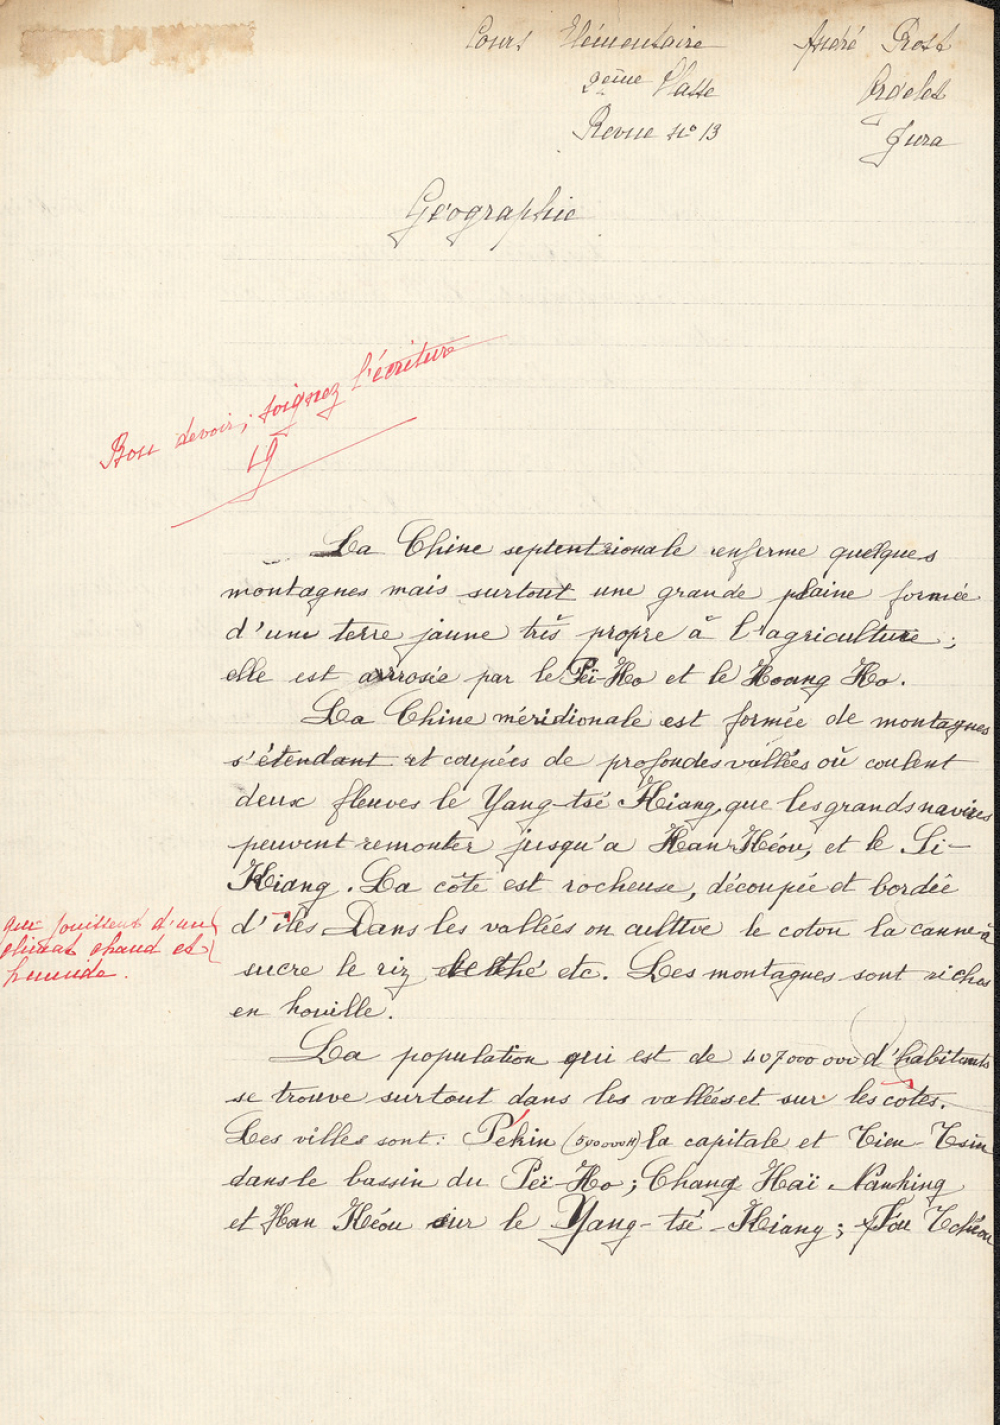 Cours Elémentaire André Prost
2ème Classe Orgelet
Revue nº 13 Jura
Géographie
Bon devoir; soignez l'écriture
19
La Chine septentrionale renferme quelques
montagnes mais surtout une grande plaine formée
d'une terre jaune très propre à l'agriculture;
elle est arrosée par le Peï-Ho et le Hoang Ho.
La Chine méridionale est formée de montagnes
s'étendant et coupées de profondes vallées où coulent
deux fleuves le Yang-tsé Kiang que les grands navires
peuvent remonter jusqu'a Han-Kéou, et le Si-
Kiang. La côte est rocheuse, découpée et bordée
d'îles Dans les vallées on cultive le coton la canne à
qui jouissent d'un
climat chaud et
humide.
sucre le riz le thé etc. Les montagnes sont riches
en houille.
La population qui est de 407000000 d'habitants
se trouve surtout dans les vallées et sur les côtes.
Les villes sont: Pékin (500000H) la capitale et Tien-Tsin
dans le bassin du Peï-Ho; Chang Haï Nanking
et Han Kéou sur le Yang-tsé-Kiang; Fou Tchéou